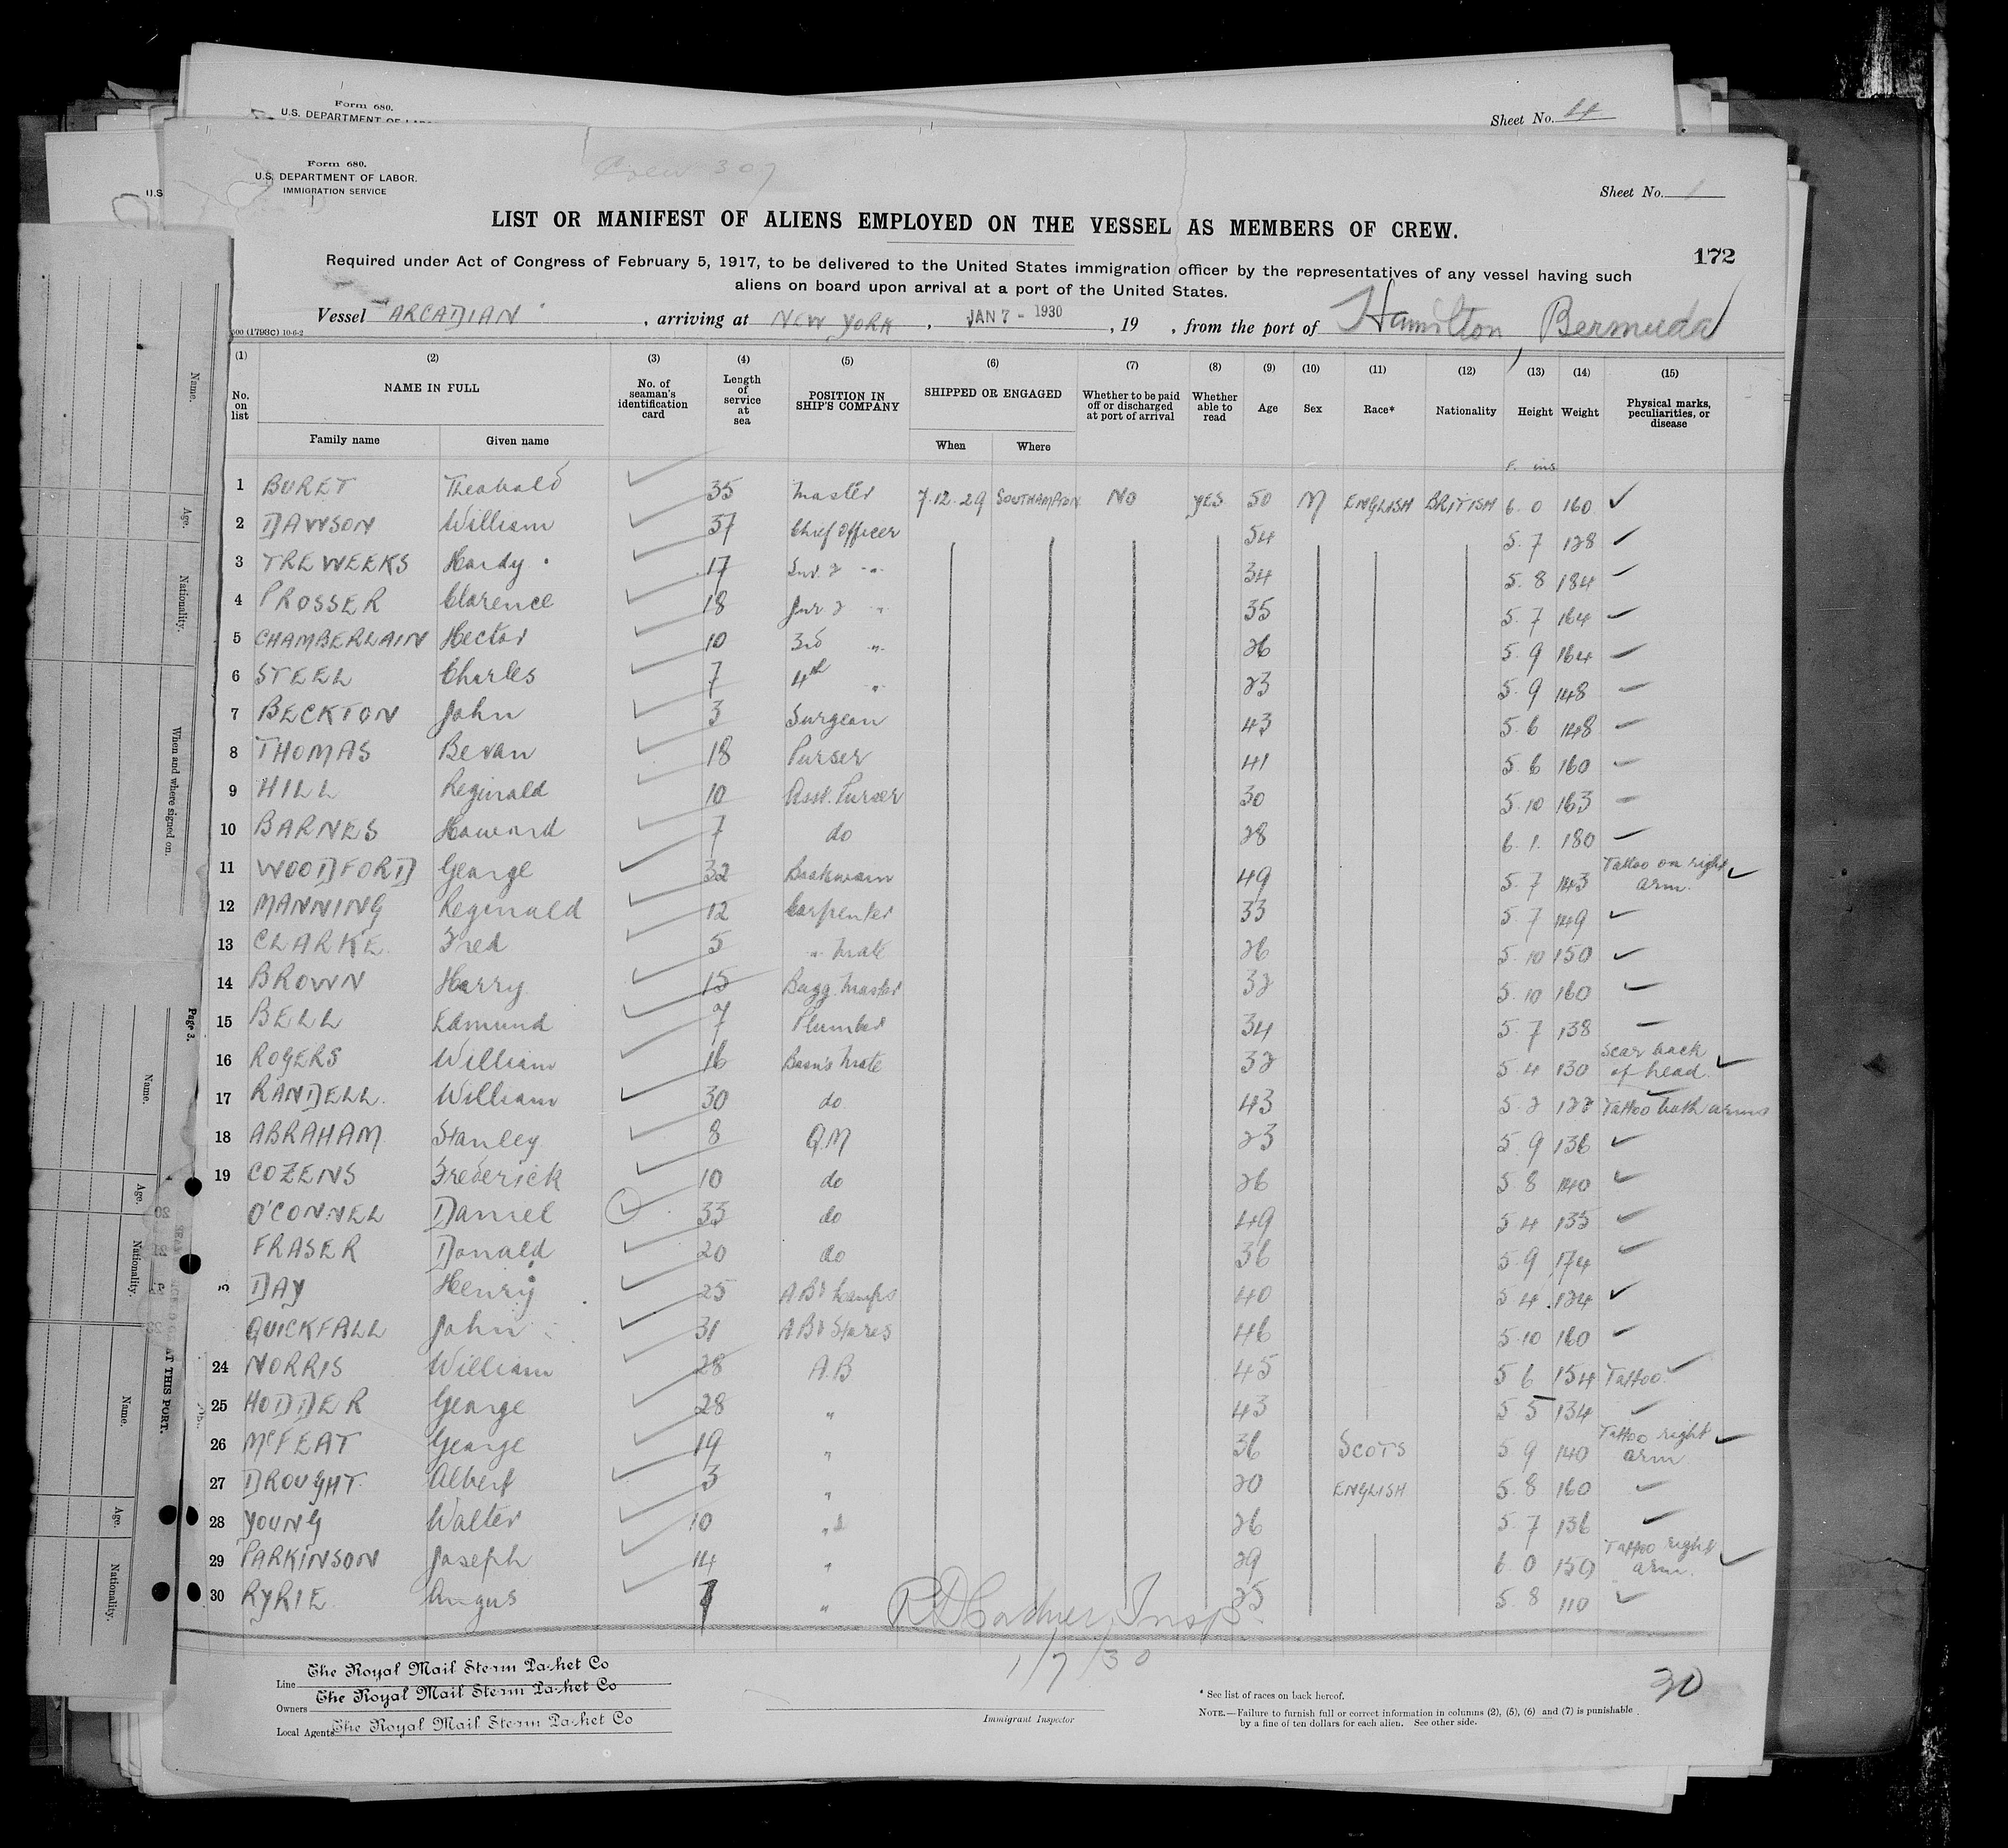 Form 680.
U.S. DEPARTMENT OF LABOR
Sheet No. 4
Form 680.
U.S. DEPARTMENT OF LABOR.
IMMIGRATION SERVICE
Crew 307
Sheet No. 1
LIST OR MANIFEST OF ALIENS EMPLOYED ON THE VESSEL AS MEMBERS OF CREW.
172
Required under Act of Congress of February 5, 1917, to be delivered to the United States immigration officer by the representatives of any vessel having such
aliens on board upon arrival at a port of the United States.
Vessel "ARCADIAN", arriving at NEW YORK, JAN 7 - 1930, 19 , from the port of Hamilton, Bermuda
(1) (2) (3) (4) (5) (6) (7) (8) (9) (10) (11) (12) (13) (14) (15)
No. on list NAME IN FULL No. of seaman's identification card Length of service at sea POSITION IN SHIP'S COMPANY SHIPPED OR ENGAGED Whether to be paid off or discharged at port of arrival Whether able to read Age Sex Race* Nationality Height Weight Physical marks, peculiarities, or disease
Family name Given name When Where
F. ins
1 BURET Theobald ✓ 35 Master 7.12.29 SOUTHAMPTON NO YES 50 M ENGLISH BRITISH 6. 0 160 ✓
2 DAWSON William ✓ 37 Chief Officer 54 5. 7 128 ✓
3 TREWEEKS Hardy ✓ 17 Snr. 2 " 34 5. 8 184 ✓
4 PROSSER Clarence ✓ 18 Jnr 2 " 35 5. 7 164 ✓
5 CHAMBERLAIN Hector ✓ 10 3rd " 26 5. 9 164 ✓
6 STEEL Charles ✓ 7 4th " 23 5. 9 148 ✓
7 BECKTON John ✓ 3 Surgeon 43 5. 6 148 ✓
8 THOMAS Bevan ✓ 18 Purser 41 5. 6 160 ✓
9 HILL Reginald ✓ 10 Asst. Purser 30 5. 10 163 ✓
10 BARNES Howard ✓ 7 do 28 6. 1. 180 ✓
11 WOODFORD George ✓ 32 Boatswain 49 5. 7 143 Tattoo on right arm. ✓
12 MANNING Reginald ✓ 12 Carpenter 33 5. 7 149 ✓
13 CLARKE Fred ✓ 5 " Mate 26 5. 10 150 ✓
14 BROWN Harry ✓ 15 Bagg. Master 32 5. 10 160 ✓
15 BELL Edmund ✓ 7 Plumber 34 5. 7 138 ✓
16 ROGERS William ✓ 16 Bosn's Mate 32 5. 4 130 Scar back of head. ✓
17 RANDELL William ✓ 30 do 43 5. 2 122 Tattoo both arms ✓
18 ABRAHAM Stanley ✓ 8 QM 23 5. 9 136 ✓
19 COZENS Frederick ✓ 10 do 26 5. 8 140 ✓
O'CONNEL Daniel ✓ 33 do 49 5 4 135 ✓
FRASER Donald ✓ 20 do 36 5 9 174 ✓
DAY Henry ✓ 25 AB & Lamps 40 5 4 124 ✓
QUICKFALL John ✓ 31 AB & Stores 46 5. 10 160 ✓
24 NORRIS William ✓ 28 A.B 45 5 6 154 Tattoo. ✓
25 HODDER George ✓ 28 " 43 5 5 134 ✓
26 McFEAT George ✓ 19 " 36 SCOTS 5. 9 140 Tattoo right arm ✓
27 DROUGHT Albert ✓ 3 " 20 ENGLISH 5. 8 160 ✓
28 YOUNG Walter ✓ 10 " 26 5. 7 136 ✓
29 PARKINSON Joseph ✓ 14 " 29 6. 0 150 Tattoo right arm. ✓
30 RYRIE Angus ✓ 7 " 25 5. 8 110 ✓
Insp.
1/7/30
30
Line The Royal Mail Steam Packet Co
Owners The Royal Mail Steam Packet Co
Local Agents The Royal Mail Steam Packet Co
Immigrant Inspector
* See list of races on back hereof.
NOTE.—Failure to furnish full or correct information in columns (2), (5), (6) and (7) is punishable
by a fine of ten dollars for each alien. See other side.
Name.
Age.
Nationality.
When and where signed on.
Page 3.
Name.
Age.
Nationality.
AT THIS PORT.
Name.
Age.
Nationality.